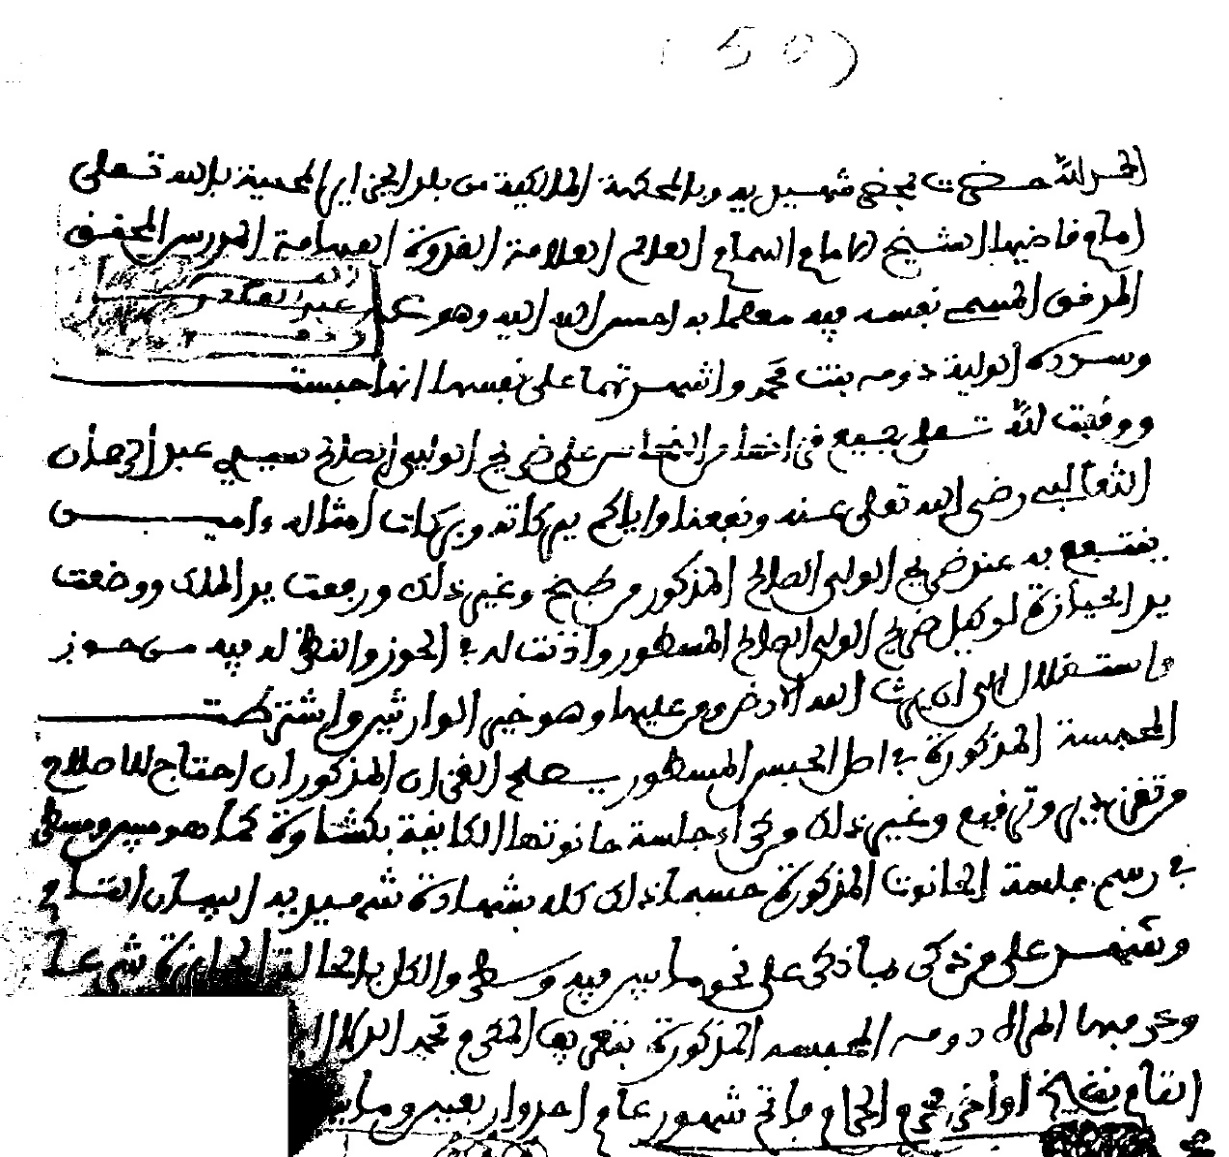 (50)
الحمد لله حضرت بمحضر شهيديه وبالمحكمة المالكية من بلد الجزاير المحمية بالله تعلى
امام قاضيها الشيخ الامام الهمام العالم العلامة القدوة الفهامة المدرس المحقق
المرفق المسمى نفسه فيه معلما به احسن الله اليه وهو
عبد القادر
وسدده الولية دومه بنت محمد واشهدتهما على نفسها انها حبست
ووقفت لله تعلى جميع على ضريح الولي الصالح سيدي عبد الرحمان
الثعالبي رضي الله تعلى عنه ونفعنا واياكم ببركاته وبركات امثاله ءاميـن
ينتفع به عند ضريح الولي الصالح المذكور من طبخ وغير ذلك ورفعت يد الملك ووضعت
يد الحيازة لوكيل ضريح الولي الصالح المسطور واذنت له في الحوز والنظر له فيه من حوز
واستغلال الى ان يرث الله الارض ومن عليها وهو خير الوارثين واشترطت
المحبسة المذكورة في اصل الحبس المسطور يصلح الفران المذكور ان احتاج للاصلاح
من وترقيع وغير ذلك من كراء جلسة حانوتها الكاينة بكشاوة كما هو مبين ومسطر
في رسم جلسة الحانوت المذكورة حسبما ذلك كله بشهادة شهيديه البيان التام
وشهد على من ذكر بما ذكر على نحو ما بين فيه وسطر والكل بالحالة الجايزة شرعا
وعرف بها دومه المحبسه المذكورة المكرم محمد
التام بتاريخ اواخر محرم الحرام فاتح شهور عام احد واربعين وما